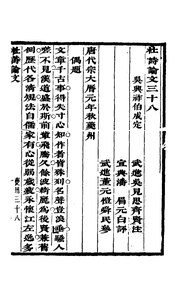 杜詩論文三十八
吳興祥伯成定
武進吳見思齊賢注
宜興潘眉元白評
武進董元愷舜民參
唐代宗大曆元年秋夔州
偶題
文章千古事得失寸心知作者皆殊列名聲豈浪垂騷人
嗟不見漢道盛於斯前輩飛騰入餘波綺麗為後賢兼舊
制歷代各清規法自儒家有心從弱歲疲永懷江左逸多
杜詩論文